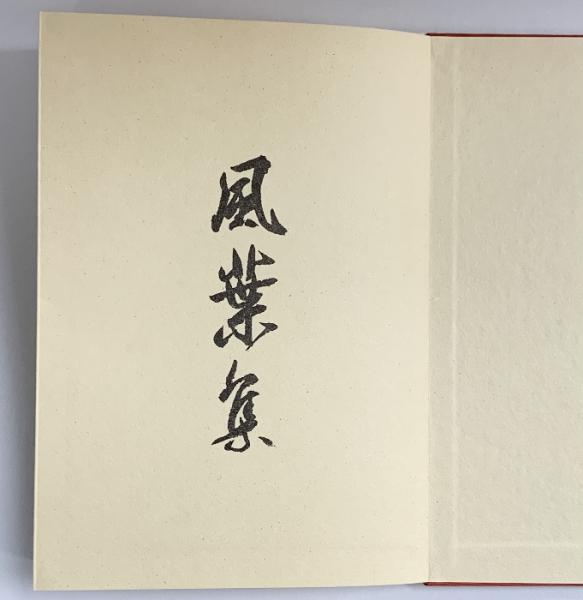 風葉集